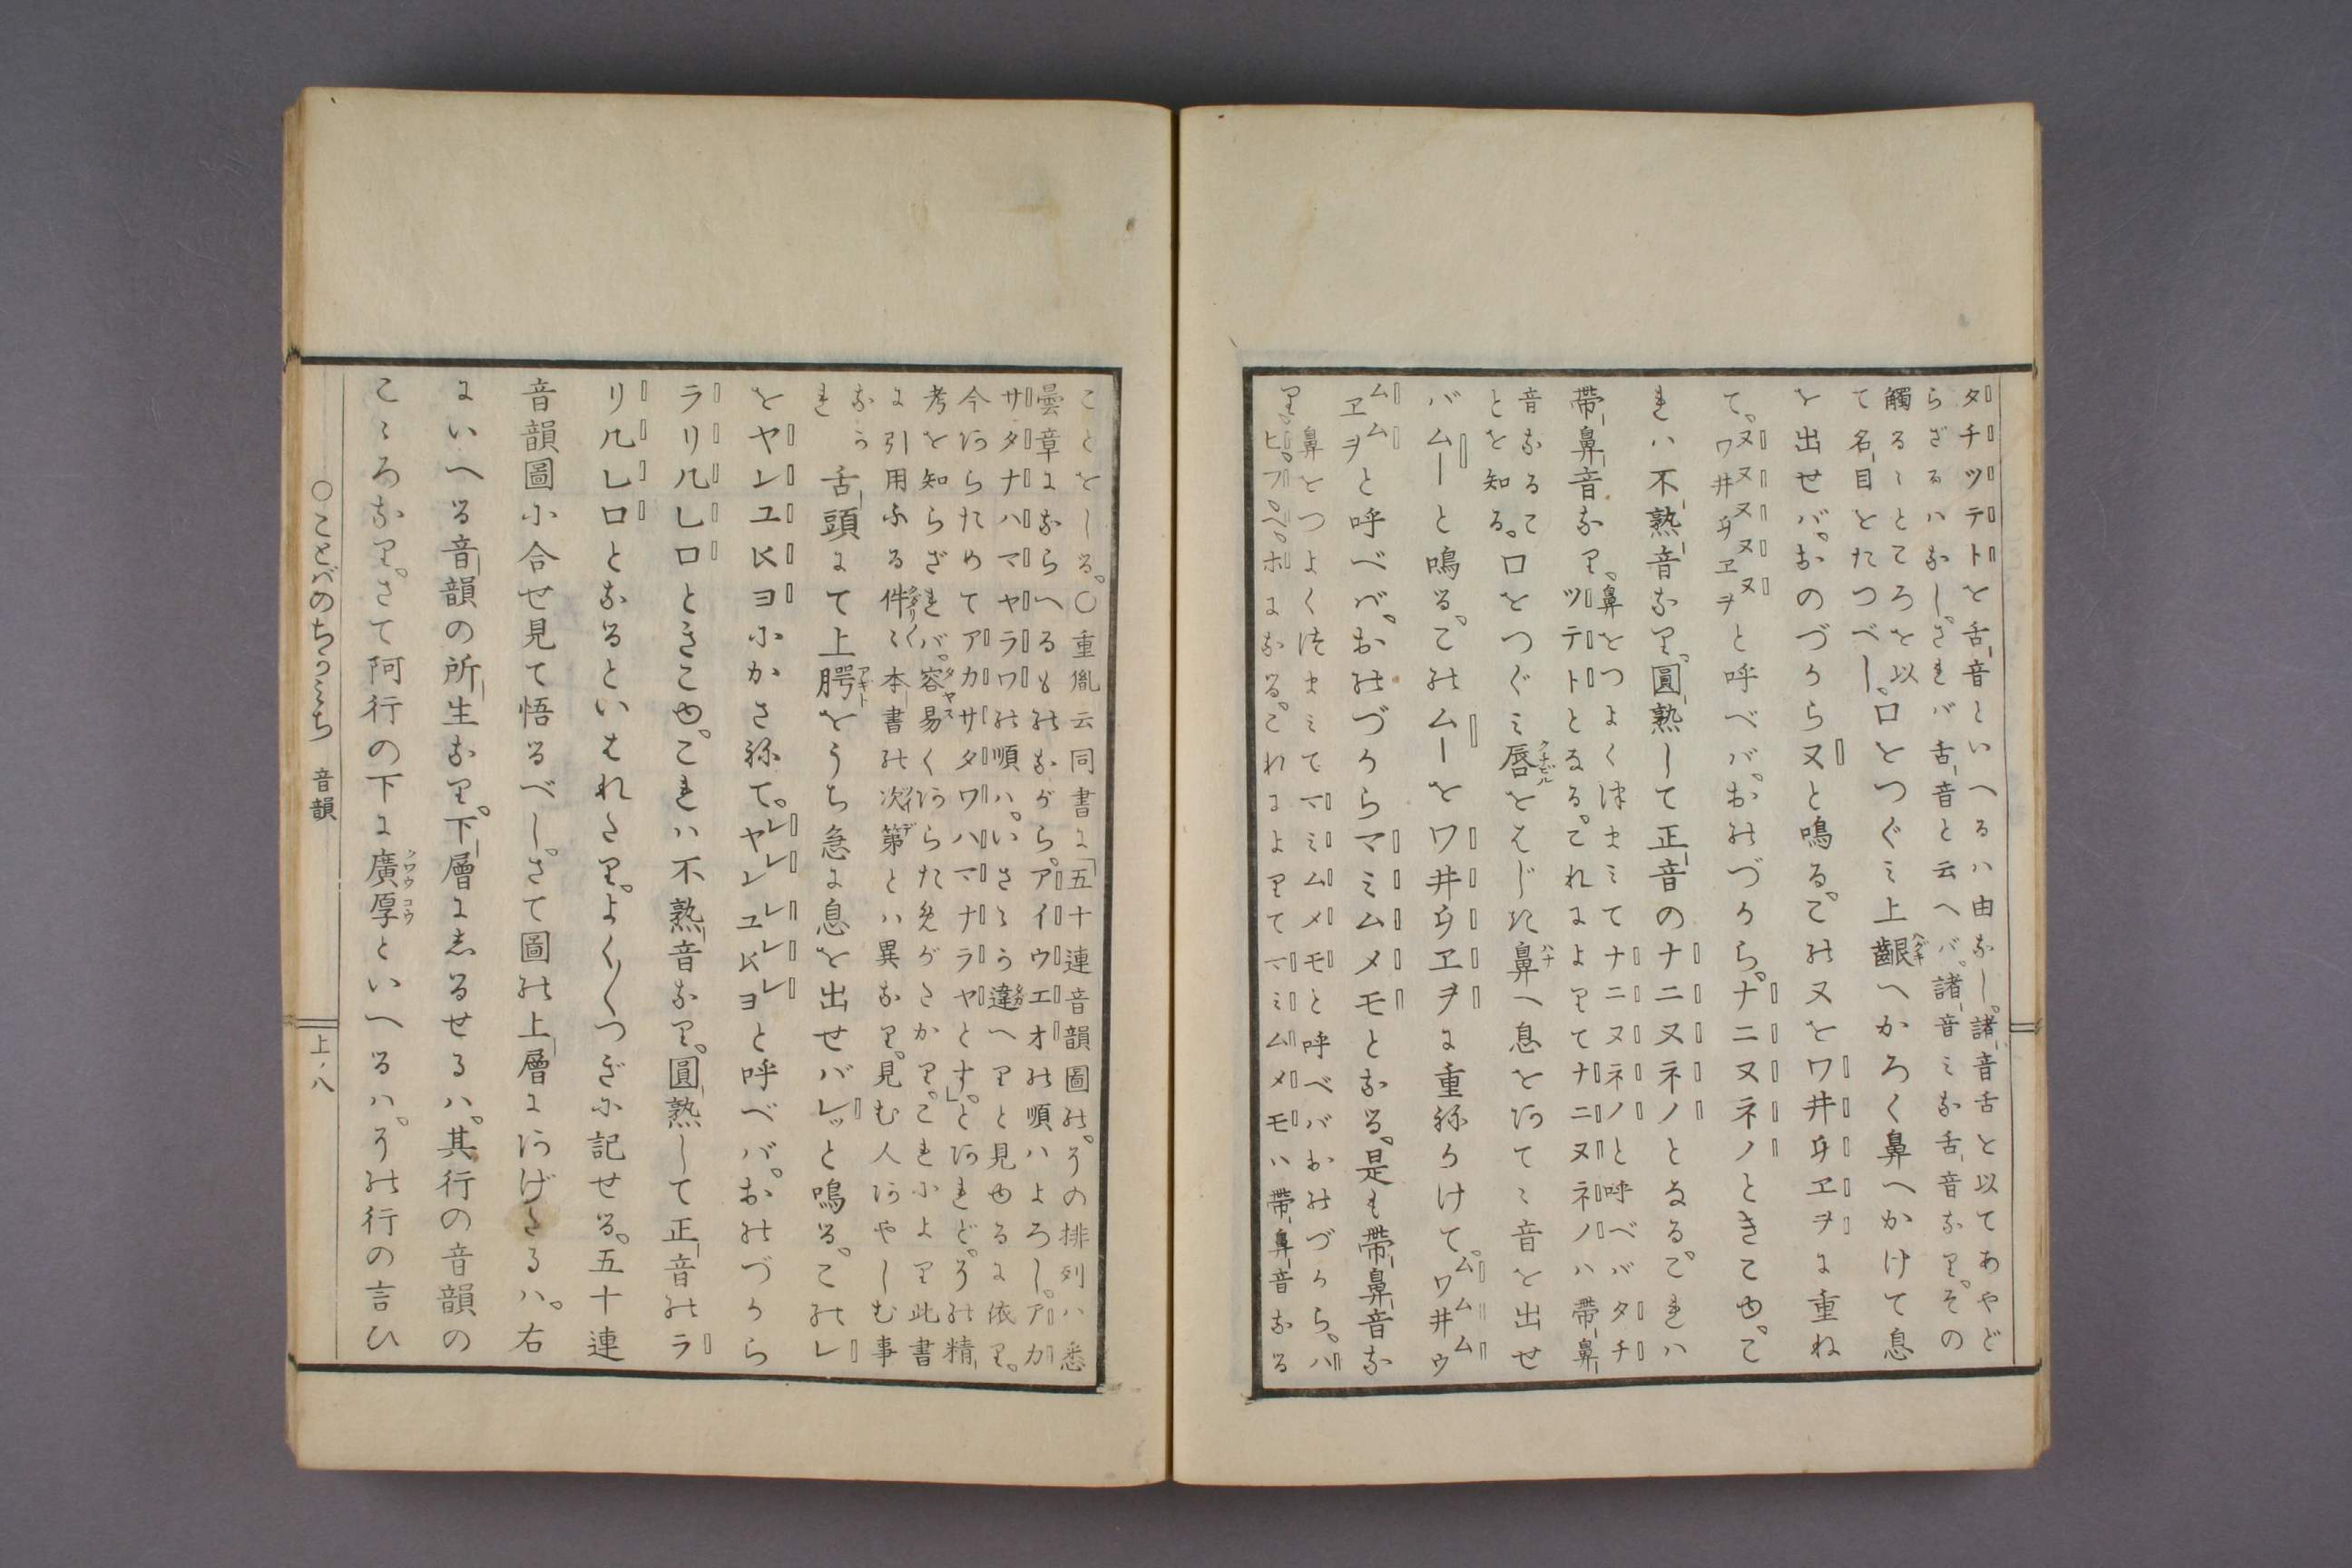 タチツテトを舌音といへるハ由なし。諸音舌を以てあやど
らざるハなし。されバ舌音と云へバ。諸音ミな舌音なり。その
觸るゝところを以
て名目をたつべし。口をつぐミ上齦へかろく鼻へかけて息
を出せバ。おのづからヌと鳴る。このヌをワ井ウヱヲに重ね
て。ヌワヌ井ヌウヌヱヌヲと呼べバ。おのづから。ナニヌネノときこゆ。こ
れハ不熟音なり。圓熟して正音のナニヌネノとなる。これハ
帶鼻音なり。鼻をつよくつまミてナニヌネノと呼べバタチ
ツテトとなる。これによりてナニヌネノハ帶鼻
音なるこ
とを知る。口をつぐミ唇をはじき鼻へ息をあてゝ音を出せ
バムーと鳴る。このムーをワ井ウヱヲに重ねかけて。ムワム井ムウ
ムヱムヲと呼べバ。おのづからマミムメモとなる。是も帶鼻音な
り。鼻をつよくつまミてマミムメモと呼べバおのづから。バ
ビ。ブ。ベ。ボになる。これによりてマミムメモハ帶鼻音なる
ことをしる。○重胤云同書に「五十連音韻圖の。その排列ハ悉
曇章にならへるものながら。アイウエオの順ハよろし。アカ
サタナハマヤラワの順ハ。いさゝか違へりと見ゆるに依り。
今あらためてアカサタワハマナラヤとす」とあれど。その精
考を知らざれバ。容易くあらためがたかり。これにより此書
に引用ふる件々本書の次第とハ異なり。見む人あやしむ事
なか
れ 舌頭にて上腭をうち急に息を出せバレッと鳴る。このレ
をヤンユKヨにかさねて。レヤレンレユレKレヨと呼べバ。おのづから
ラリルレロときこゆ。これハ不熟音なり。圓熟して正音のラ
リルレロとなるといはれたり。よく〳〵つぎに記せる。五十連
音韻圖に合せ見て悟るべし。さて圖の上層にあげたるハ。右
にいへる音韻の所生なり。下層にしるせるハ。其行の音韻の
こゝろなり。さて阿行の下に廣厚といへるハ。その行の言ひ
○ことばのちかみち 音韻
上ノ八